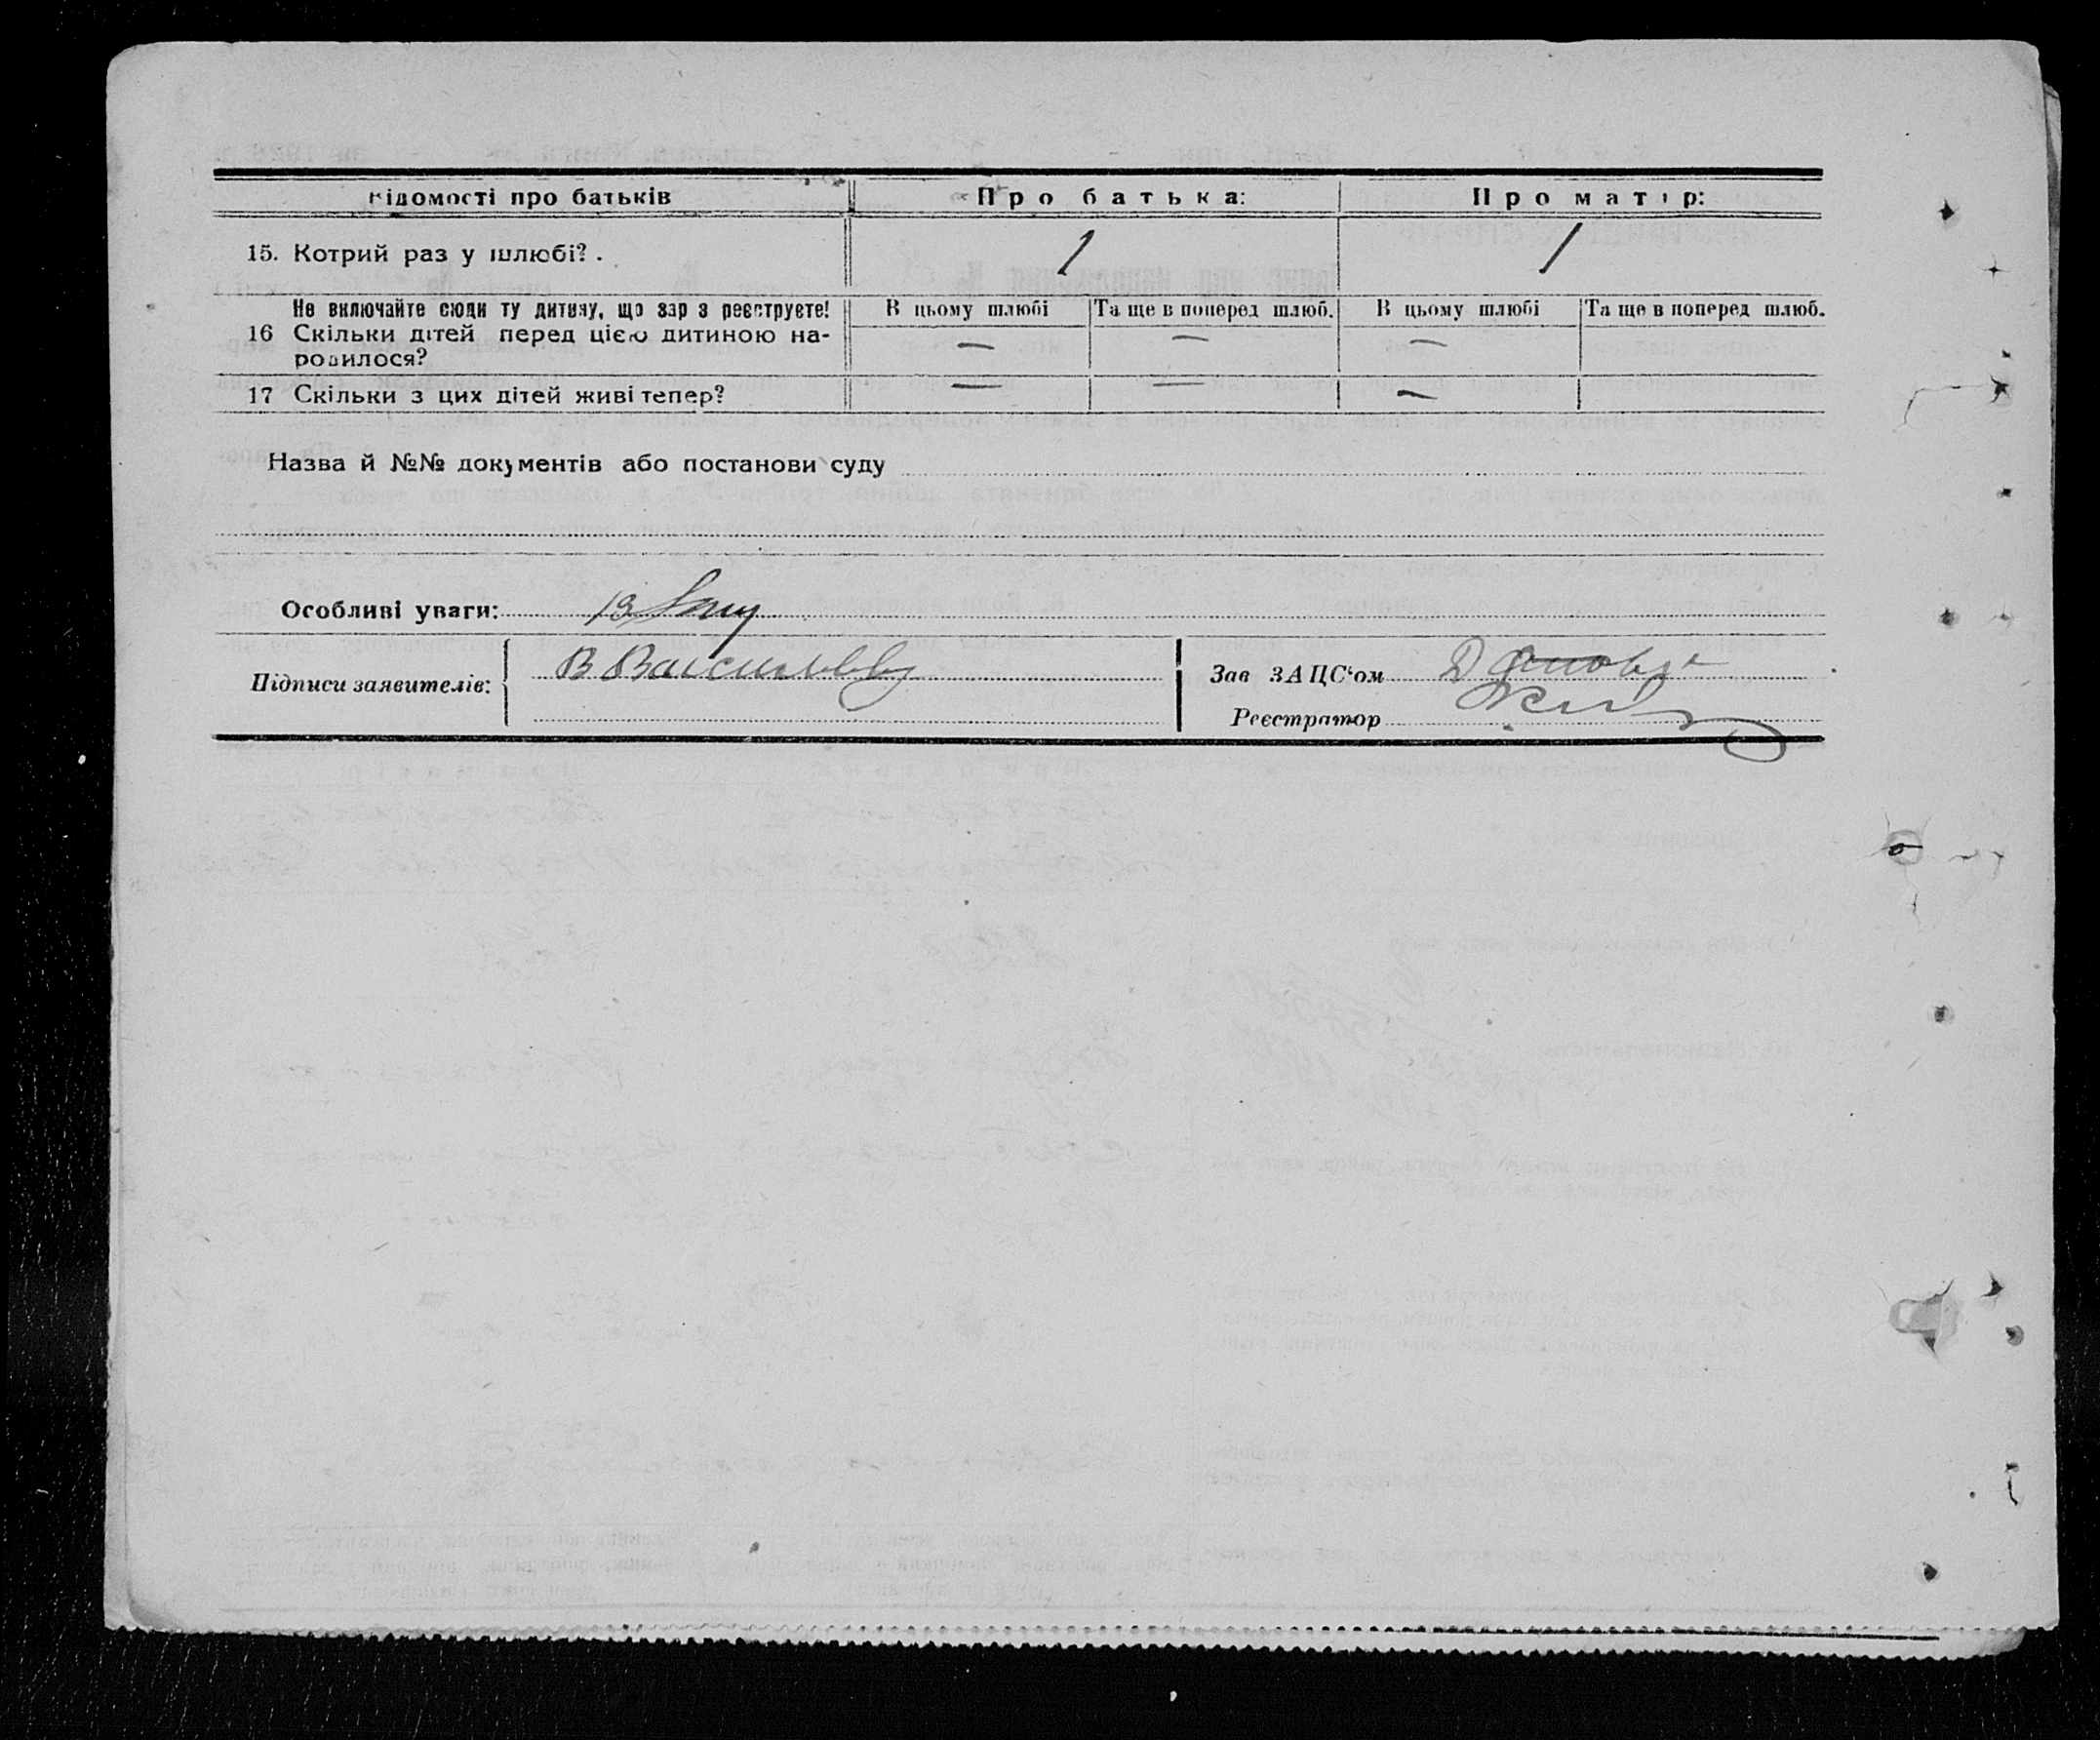 Відомості про батьків Про батька: Про матір:
15. Котрий раз у шлюбі? . 1 1
Не включайте сюди ту дитину, що зар з реєструєте! В цьому шлюбі Та ще в поперед шлюб. В цьому шлюбі Та ще в поперед шлюб.
16 Скільки дітей перед цією дитиною на- — — —
родилося?
17 Скільки з цих дітей живі тепер? — — —
Назва й №№ документів або постанови суду
Особливі уваги:
Підписи заявителів: В
Зав ЗАЦС‘ом
Реєстратор